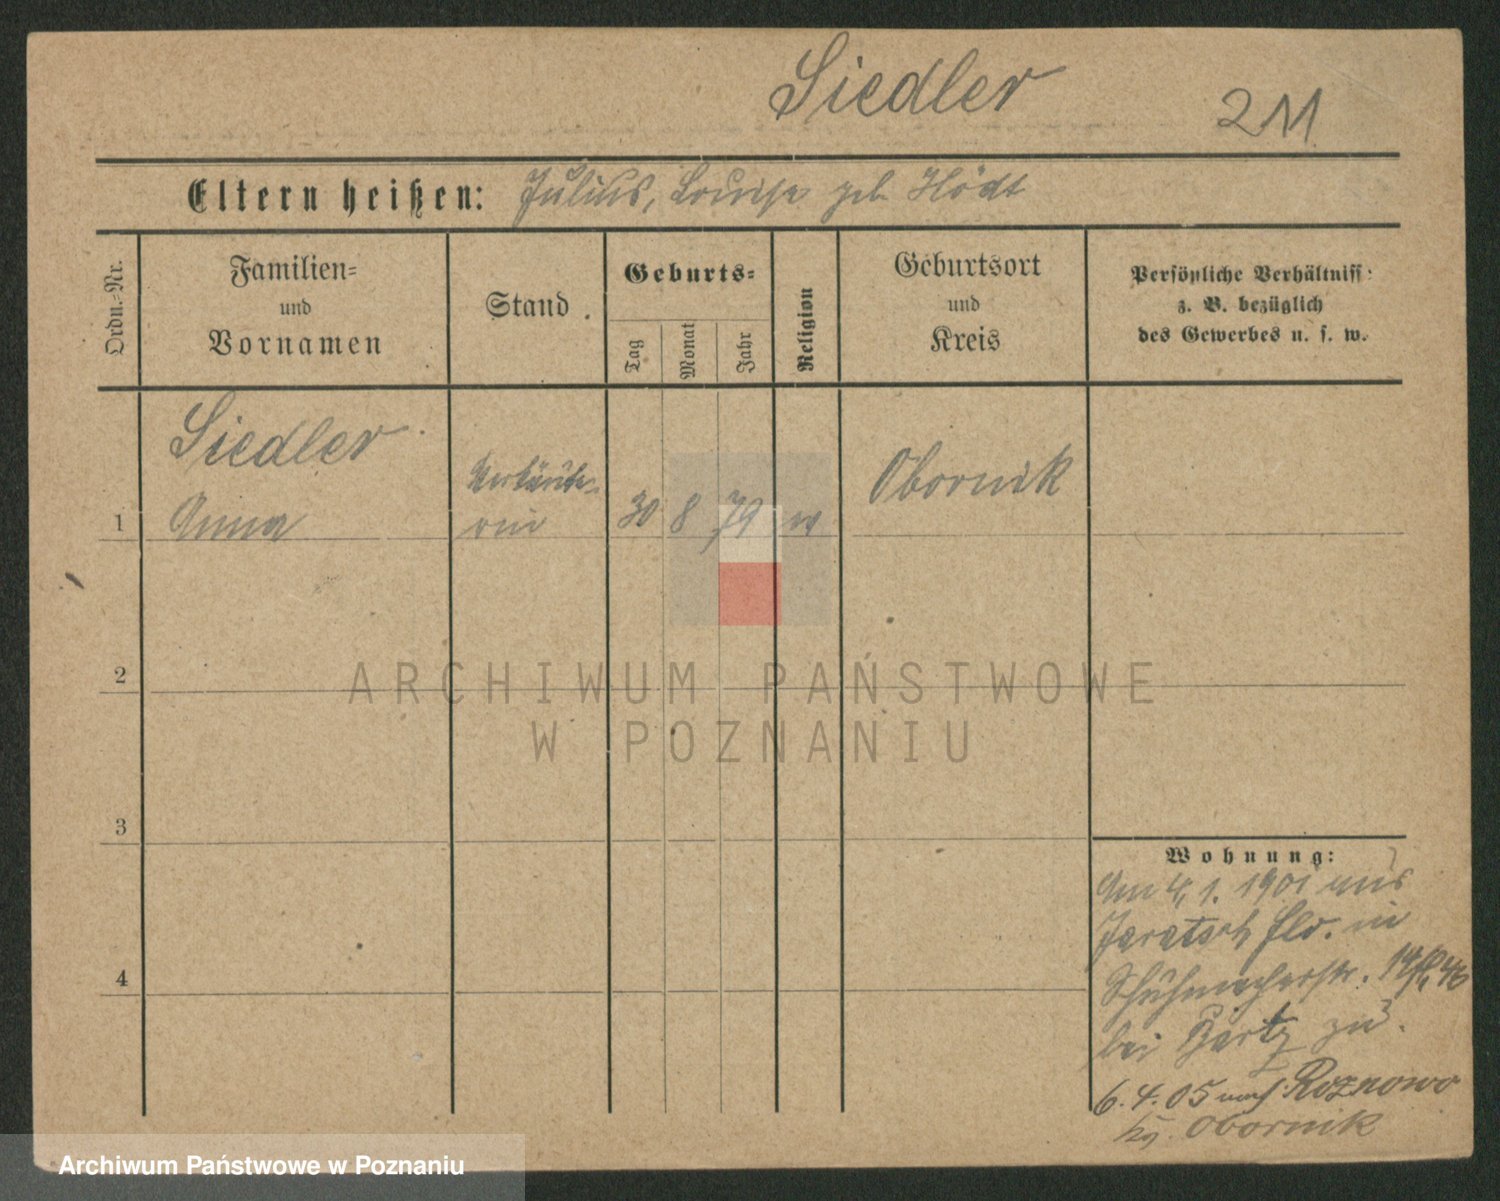 Siedler
211
Eltern heißen: Julius, Louise geb. Hödt
Ordn.-Nr.
Familien-
und
Vornamen
Stand
Geburts-
Tag
Monat
Jahr
Religion
Geburtsort
und
Kreis
Persönliche Verhältniss:
z. B. bezüglich
des Gewerbes u. s. w.
Siedler
Anna
Verkäufe-
rin
1
30 8 79
Obornik
2
3
4
Wohnung:
Am 4.1. 1901 aus
Jaratsch in
Schuhmacherstr.
bei zu.
6. 4. 05 nach Roznowo
Obornik
ARCHIWUM PAŃSTWOWE
W POZNANIU
Archiwum Państwowe w Poznaniu